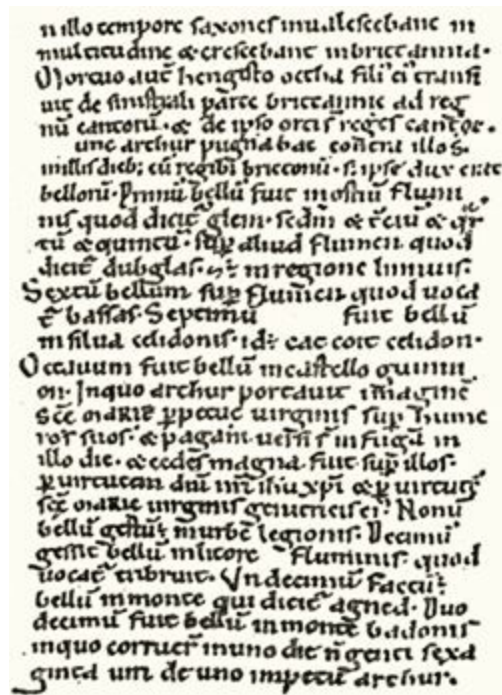 n illo tempore saxones inualescebant in
multitudine & crescebant in brittannia.
Mortuo aut̄ hengisto octha fili' ei' transi
uit de sinistrali parte brittannie ad reg
nū cantorū. & de ipso orti s̄ reges cantor̄.
unc arthur pugnabat contra illos.
in illis dieb; cū regib; brittonū. s; ipse dux erat
bellorū. Primū bellū fuit in ostiū flumi
nis quod dicit̄ glein. sedm̄ & t̄ciū & q̄r
tū & quintū. sup̄ aliud flumen quod
dicit̄ dubglas. & ÷ in regione linnuis.
Sextū bellum sup̄ flumen quod uoca
t̄ bassas. Septimū fuit bellū
in silua celidonis. id ÷ cat coit celidon.
Octauum fuit bellū in castello guinni
on. In quo arthur portauit imaginē
scē marie p̄petue uirginis sup̄ hume
ros suos. & pagani uersi s̄ in fugā in
illo die. & cedes magna fuit sup̄ illos.
p̄ uirtutem dn̄i nr̄i ih̄u xp̄i & p̄ uirtutē
scē marie uirginis genitricis ei'. Nonū
bellū gestū ÷ in urbe legionis. Decimū
gessit bellū in litore fluminis. quod
uocat̄ tribruit. Undecimū factū ÷
bellū in monte qui dicit̄ agned. Duo
decimū fuit bellū in monte badonis
in quo corruer̄ in uno die n̄genti sexa
ginta uiri de uno impetu arthur.